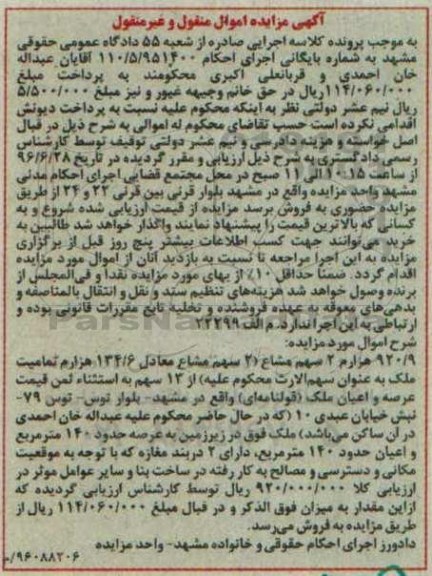 آگهی مزایده اموال منقول و غیرمنقول
به موجب پرونده کلاسه اجرایی صادره از شعبه ۵۵ دادگاه عمومی حقوقی
مشهد به شماره بایگانی اجرای احکام ۱۱۰/۵/۹۵۱۴۰۰ آقایان عبداله
خان احمدی و قربانعلی اکبری محکومند به پرداخت مبلغ
۱۱۴/۰۶۰/۰۰۰ریال در حق خانم وجیهه غیور و نیز مبلغ ۵/۵۰۰/۰۰۰
ریال نیم عشر دولتی نظر به اینکه محکوم علیه نسبت به پرداخت دیونش
اقدامی نکرده است حسب تقاضای محکوم له اموالی به شرح ذیل در قبال
اصل خواسته و هزینه دادرسی و نیم عشر دولتی توقیف توسط کارشناس
رسمی دادگستری به شرح ذیل ارزیابی و مقرر گردیده در تاریخ ۹۶/۶/۲۸
از ساعت ۱۰:۱۵ الی ۱۱ صبح در محل مجتمع قضایی اجرای احکام مدنی
مشهد واحد مزایده واقع در مشهد بلوار قرنی بین قرنی ۲۲ و ۲۴ از طریق
مزایده حضوری به فروش برسد مزایده از قیمت ارزیابی شده شروع و به
کسانی که بالاترین قیمت را پیشنهاد نمایند واگذار خواهد شد طالبین به
خرید می‌توانند جهت کسب اطلاعات بیشتر پنج روز قبل از برگزاری
مزایده به این اجرا مراجعه تا نسبت به بازدید آنان از اموال مورد مزایده
اقدام گردد. ضمنا حداقل ۱۰٪ از بهای مورد مزایده نقدا و فی‌المجلس از
برنده وصول خواهد شد هزینه‌های تنظیم سند و نقل و انتقال بالمناصفه و
بدهی‌های معوقه به عهده فروشنده و تخلیه تابع مقررات قانونی بوده و
ارتباطی به این اجرا ندارد. م الف ۲۲۲۹۹
شرح اموال مورد مزایده:
۹۲۰/۹ هزارم ۲ سهم مشاع (۲ سهم مشاع معادل ۱۳۴/۶ هزارم تمامیت
ملک به عنوان سهم‌الارث محکوم علیه) از ۱۳ سهم به استثناء ثمن قیمت
عرصه و اعیان ملک (قولنامه‌ای) واقع در مشهد- بلوار توس- توس ۷۹-
نبش خیابان عبدی ۱۰ (که در حال حاضر محکوم علیه عبداله خان احمدی
در آن ساکن می‌باشد) ملک فوق در زیرزمین به عرصه حدود ۱۴۰ مترمربع
و اعیان حدود ۱۴۰ مترمربع، دارای ۲ دربند مغازه که با توجه به موقعیت
مکانی و دسترسی و مصالح به کار رفته در ساخت بنا و سایر عوامل موثر در
ارزیابی کلا ۹۲۰/۰۰۰/۰۰۰ ریال توسط کارشناس ارزیابی گردیده که
ازاین مقدار به میزان فوق الذکر و در قبال مبلغ ۱۱۴/۰۶۰/۰۰۰ ریال از
طریق مزایده به فروش می‌رسد.
دادورز اجرای احکام حقوقی و خانواده مشهد- واحد مزایده
۹۶۰۸۸۲۰۶/م